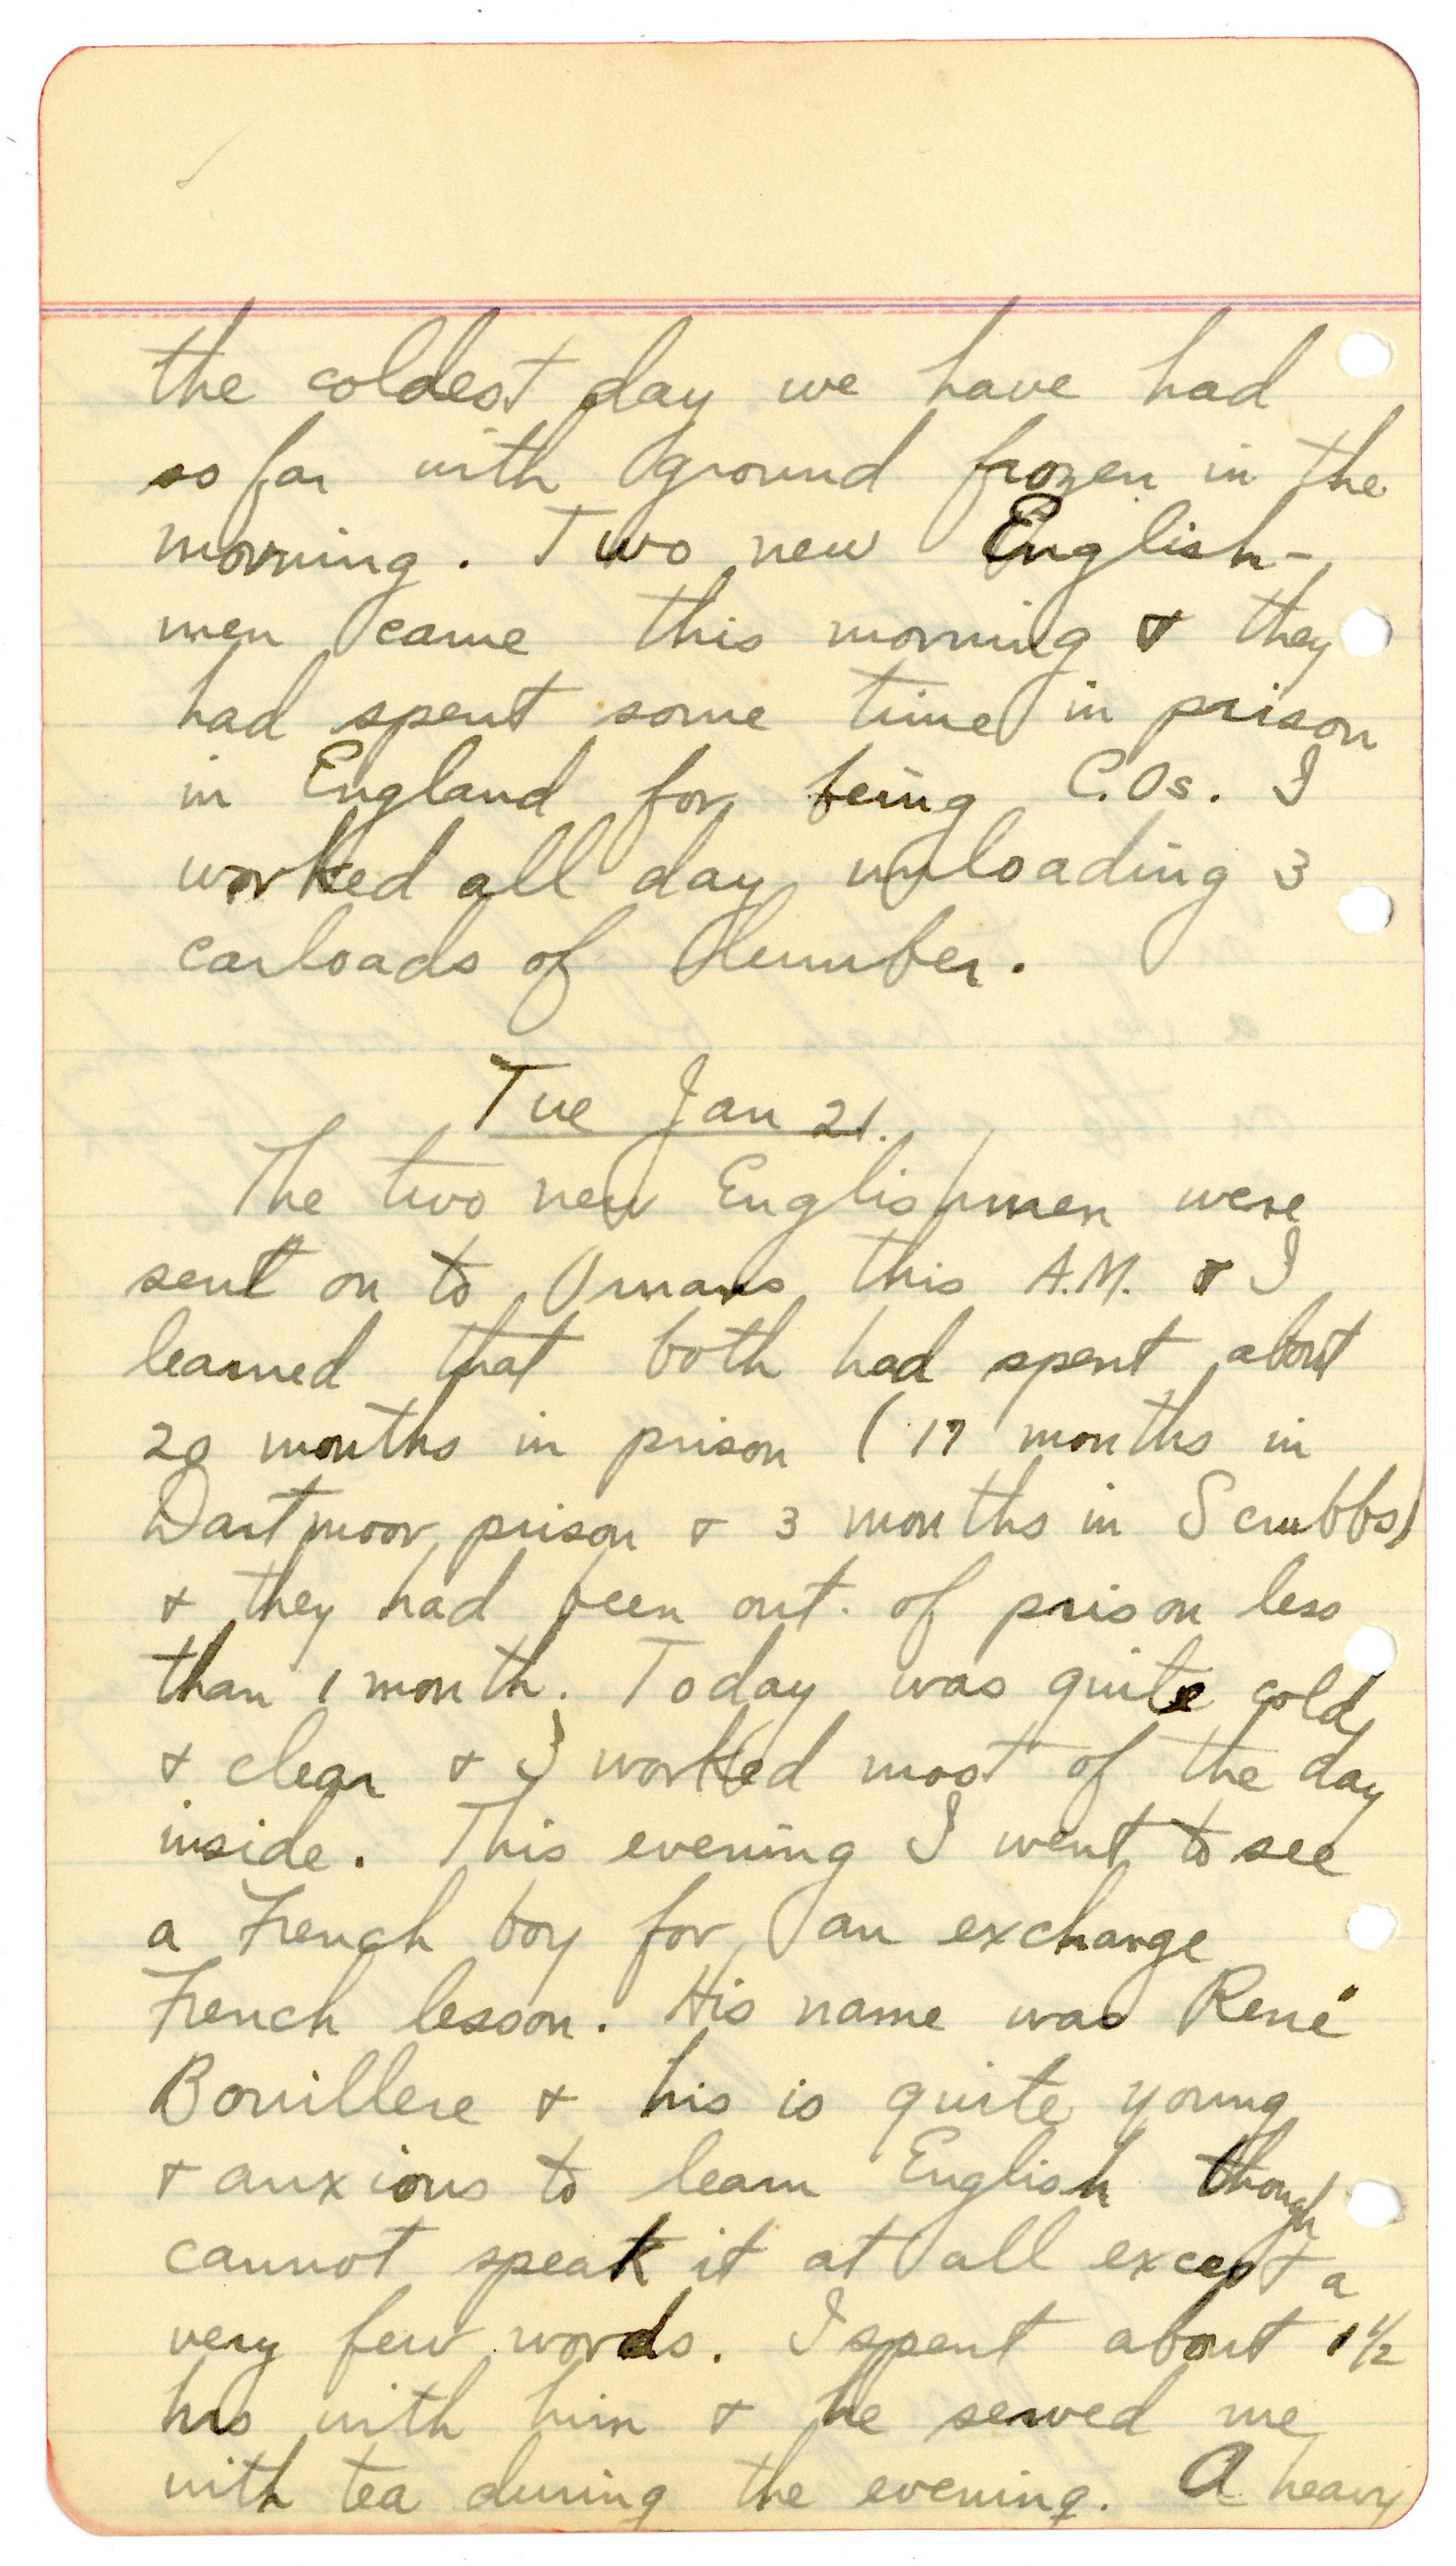 the coldest day we have had
so far with ground frozen in the
morning. Two new English-
men came this morning & they
had spent some time in prison
in England for being C.Os. I
worked all day unloading 3
carloads of lumber.
Tue Jan 21.
The two new Englishmen were
sent on to Ornans this A.M. & I
learned that both had spent about
20 months in prison (17 months in
Dartmoor prison & 3 months in Scrubbs)
& they had been out of prison less
than 1 month. Today was quite cold
& clear & I worked most of the day
inside. This evening I went to see
a French boy for an exchange
French lesson. His name was René
Bouillere & his is quite young
& anxious to learn English though
cannot speak it at all except a
very few words. I spent about 1 1/2
hrs with him & he served me
with tea during the evening. A heavy